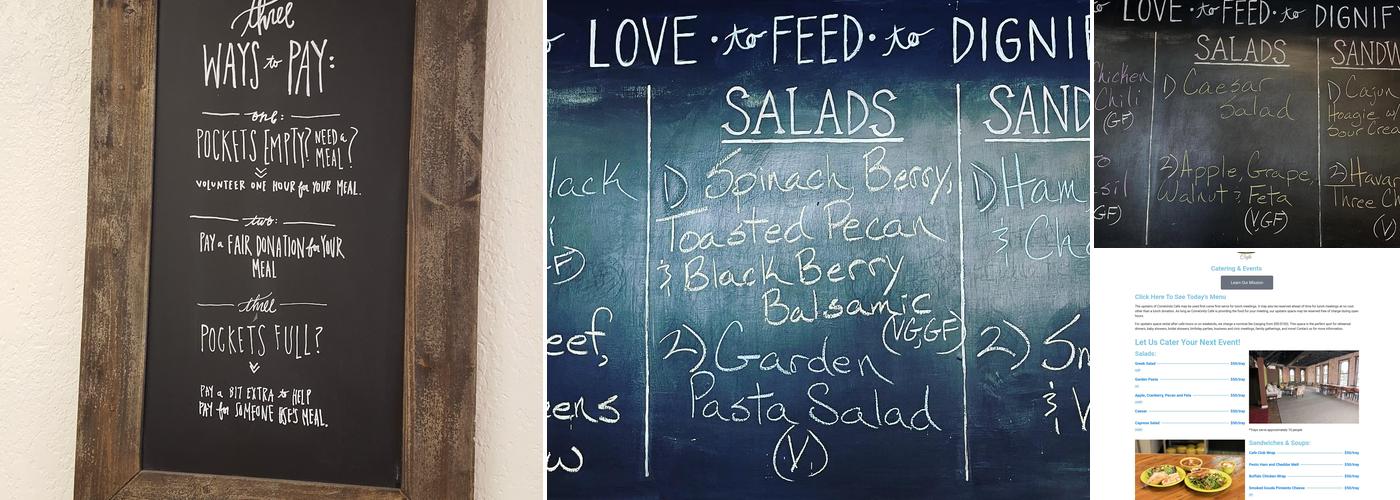 three
WAYS to PAY:
one:
POCKETS EMPTY? NEED a MEAL?
VOLUNTEER ONE HOUR for YOUR MEAL.
two:
PAY a FAIR DONATION for YOUR
MEAL
three
POCKETS FULL?
PAY a BIT EXTRA to HELP
PAY for SOMEONE ELSE'S MEAL.
LOVE · to FEED · to DIGNIF
SALADS
1) Spinach Berry,
Toasted Pecan
& Black Berry
Balsamic
(VG,GF)
2) Garden
Pasta Salad
(V)
lack
F)
eef,
eens
w
SAND
1) Ham
& Ch
2) Sm
&
LOVE · to FEED · to DIGNIF
Chicken
Chili
(GF)
sil
GF)
SALADS
1) Caesar
Salad
2) Apple, Grape,
Walnut & Feta
(V,GF)
SANDW
1) Cajun
Hoagie w/
Sour Cre
2) Havar
Three C
(V)
Cafe
Catering & Events
Learn Our Mission
Click Here To See Today's Menu
Let Us Cater Your Next Event!
Salads:
Greek Salad $50/tray
Garden Pasta $50/tray
Apple, Cranberry, Pecan and Feta $50/tray
Caesar $50/tray
Caprese Salad $50/tray
*Trays serve approximately 15 people
Sandwiches & Soups:
Cafe Club Wrap $50/tray
Pesto Ham and Cheddar Melt $50/tray
Buffalo Chicken Wrap $50/tray
Smoked Gouda Pimiento Cheese $50/tray